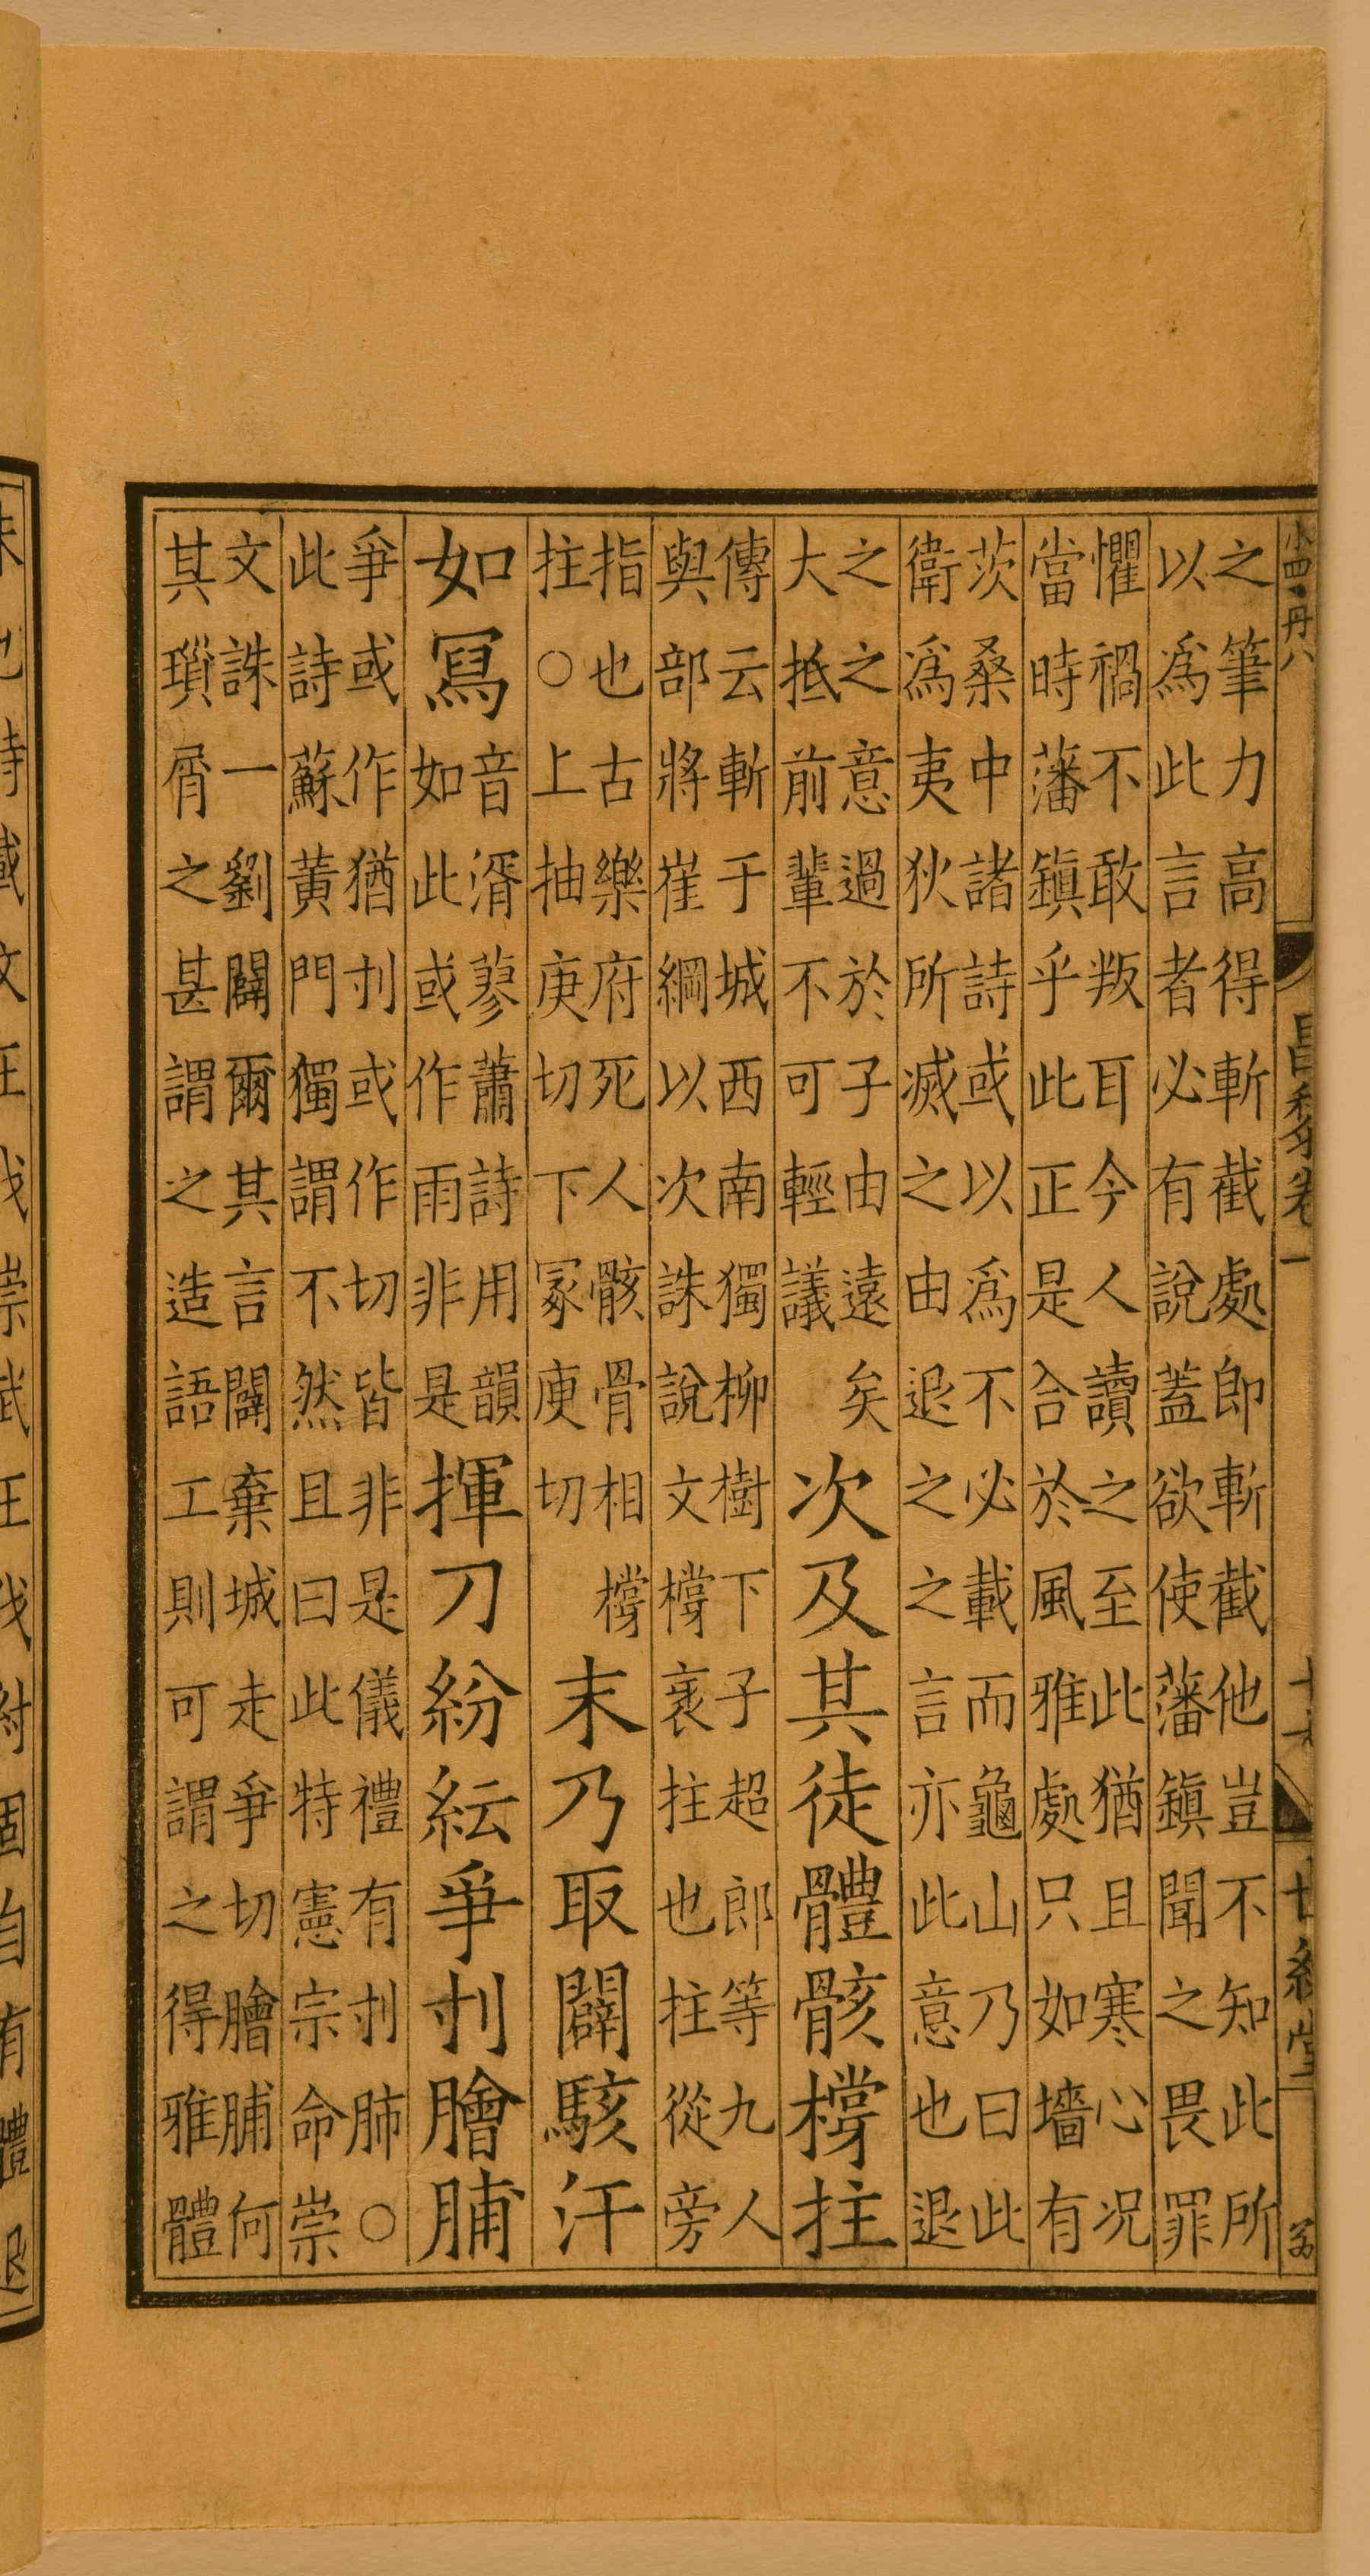 昌黎卷一
之筆力高得斬截處即斬截他豈不知此所
以爲此言者必有說蓋欲使藩鎭聞之畏罪
懼禍不敢叛耳今人讀之至此猶且寒心况
當時藩鎭乎此正是合於風雅處只如墻有
茨桑中諸詩或以爲不必載而龜山乃曰此
衛爲夷狄所滅之由退之之言亦此意也退
之之意過於子由遠矣
大抵前輩不可輕議
次及其徒體骸撐拄
傳云斬于城西南獨柳樹下子超郎等九人
與部將崔綱以次誅說文撐衺拄也拄從旁
指也古樂府死人骸骨相撐
拄○上抽庚切下冢庾切
末乃取闢駭汗
如寫
音湑蓼蕭詩用韻
如此或作雨非是
揮刀紛紜爭刌膾脯
爭或作猶刌或作切皆非是儀禮有刌肺○
此詩蘇黃門獨謂不然且曰此特憲宗命崇
文誅一劉闢爾其言闢棄城走爭切膾脯何
其瑣屑之甚謂之造語工則可謂之得雅體